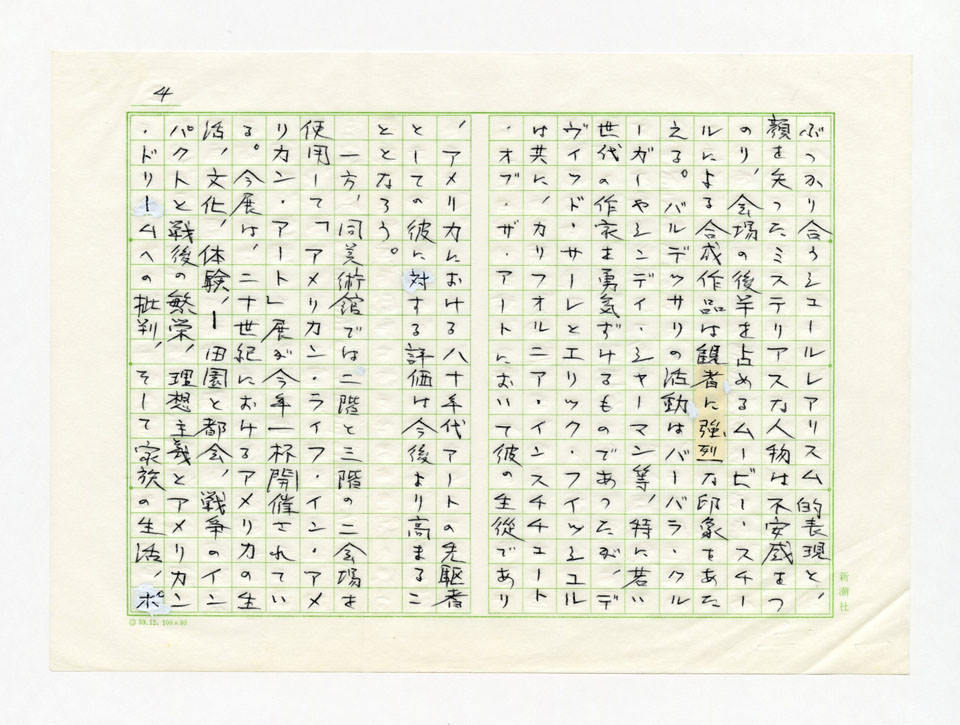 4
ぶつかり合うシュールレアリスム的表現と、
顔を失ったミステリアスな人物は不安感をつ
のり、会場の後半を占めるムービー・スチー
ルによる合成作品は観者に強烈な印象をあた
える。バルデッサリの活動はバーバラ・クル
ーガーやシンディ・シャーマン等、特に若い
世代の作家を勇気ずけるものであったが、デ
ヴィッド・サーレとエリック・フイッシュル
は共に、カリフォルニア・インスチチュート
・オブ・ザ・アートにおいて彼の生従であり
、アメリカにおける八十年代アートの先駆者
としての彼に対する評価は今後より高まるこ
ととなろう。
一方、同美術館では二階と三階の二会場を
使用して「アメリカン・ライフ・イン・アメ
リカン・アート」展が今年一杯開催されてい
る。今展は、二十世紀におけるアメリカの生
活、文化、体験、ー田園と都会、戦争のイン
パクトと戦後の繁栄、理想主義とアメリカン
・ドリームへの批判、そして家族の生活、ポ
新潮社